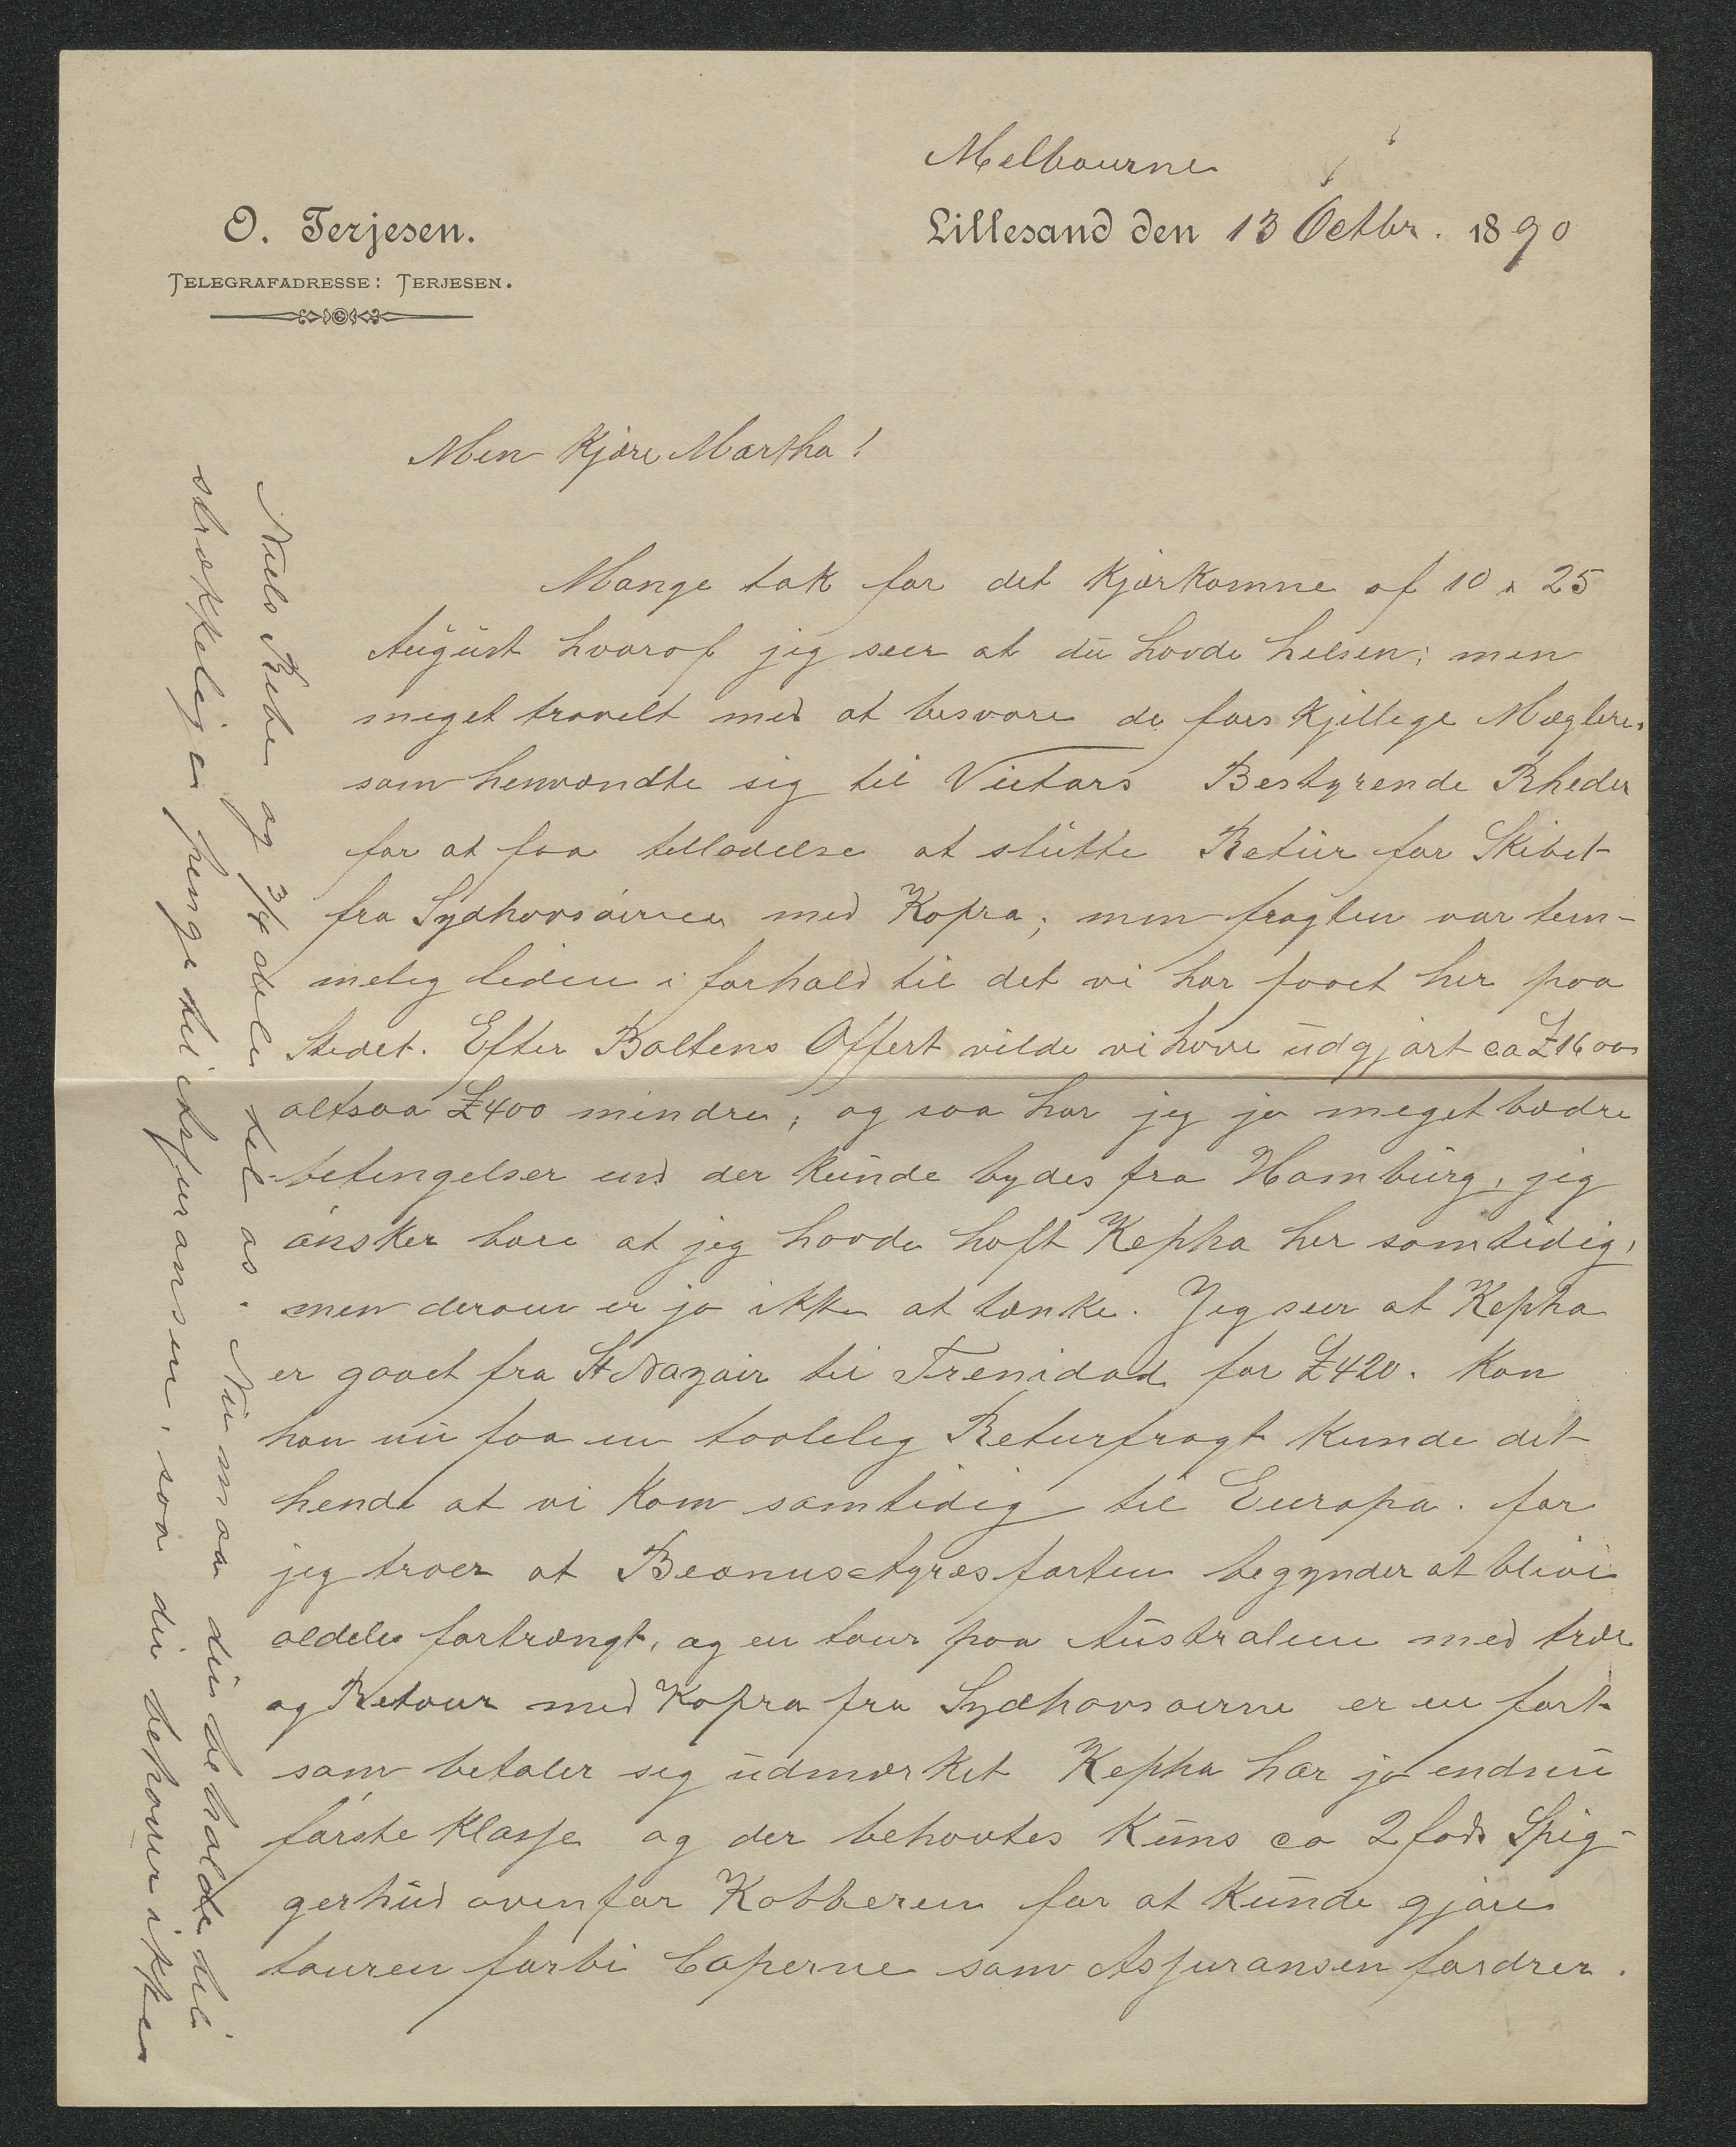 Melbourne
O. Terjesen.
Lillesand den 13 Octbr. 1890
TELEGRAFADRESSE: TERJESEN.
Men Kjære Martha!
Mange tak for det kjærkomne af 10 & 25
August hvoraf jeg seer at du havde helsen; men
meget travelt med at besvare de forskjellige Mæglere
som henvendte sig til Victors Bestyrende Rheder
for at faa telladelse at slutte Retur for Skibet
fra Sydhavsøerne med Kopra; men fragten var tem-
melig leden i forhold til det vi har faaet her paa
Stedet. Efter Boltens Offert vilde vi have udgjort ca £1600
altsaa £400 mindre; og saa har jeg jo meget bædre
betingelser end der kunde bydes fra Hamburg, jeg
ønsker bare at jeg havde haft Kepha her samtidig,
men derom er jo ikke at tænke. Jeg seer at Kepha
er gaaet fra St Nazair til Trenidad for £420. Kan
han nu faa en taalelig Returfragt kunde det
hende at vi kom samtidig til Europa. for
jeg troer at Beanusatyresfarten begynder at blive
aldeles fortrængt, og en tour paa Australien med træl
og Retour med Kopra fra Sydhavsøerne er en fart
som betaler sig udmærket Kepha har jo endnu
første Klasse og der behøvtes kuns ca 2 fods Spig-
gerhud ovenfor Kobberen for at kunde gjøre
touren forbi Caperne som Assuransen fordrer.
Niels Beber og 3/4 deler til os. Nu maa du beholde til
strækkelig penge til Assuransen, saa du behøver ikke